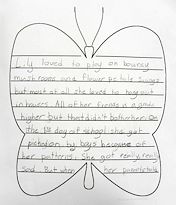 Lily loved to play on bouncy
mushrooms and flower petals swings
but most of all she loved to hang out
in flowers. All of her friends
higher but that didn't bother her. On
the 1st day of school she got
picked on by boys because of
her patterns. She got really, really
sad. But when her parents told